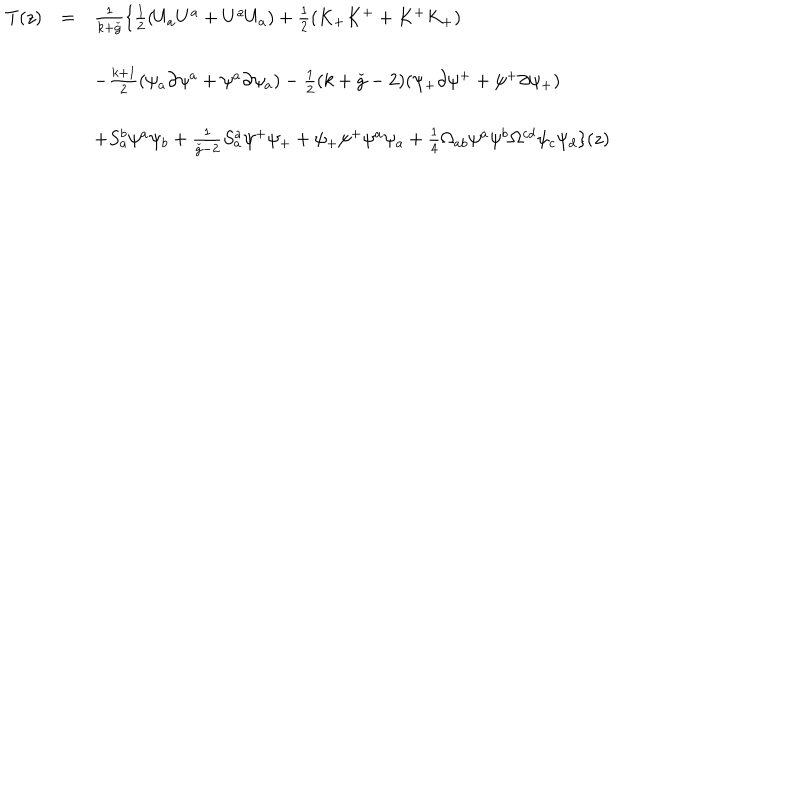 T(z) = \frac{1}{k+\check{g}} \{ \frac{1}{2} (U_a U^a + U^a U_a) + \frac{1}{2} (K_+ K^+ + K^+ K_+)
- \frac{k+1}{2} (\psi_a \partial \psi^a + \psi^a \partial \psi_a) - \frac{1}{2} (k + \check{g} - 2)(\psi_+ \partial \psi^+ + \psi^+ \partial \psi_+)
+ S_a^b \psi^a \psi_b + \frac{1}{\check{g}-2} S_a^a \psi^+ \psi_+ + \psi_+ \psi^+ \psi^a \psi_a + \frac{1}{4} \Omega_{ab} \psi^a \psi^b \Omega^{cd} \psi_c \psi_d \}(z)